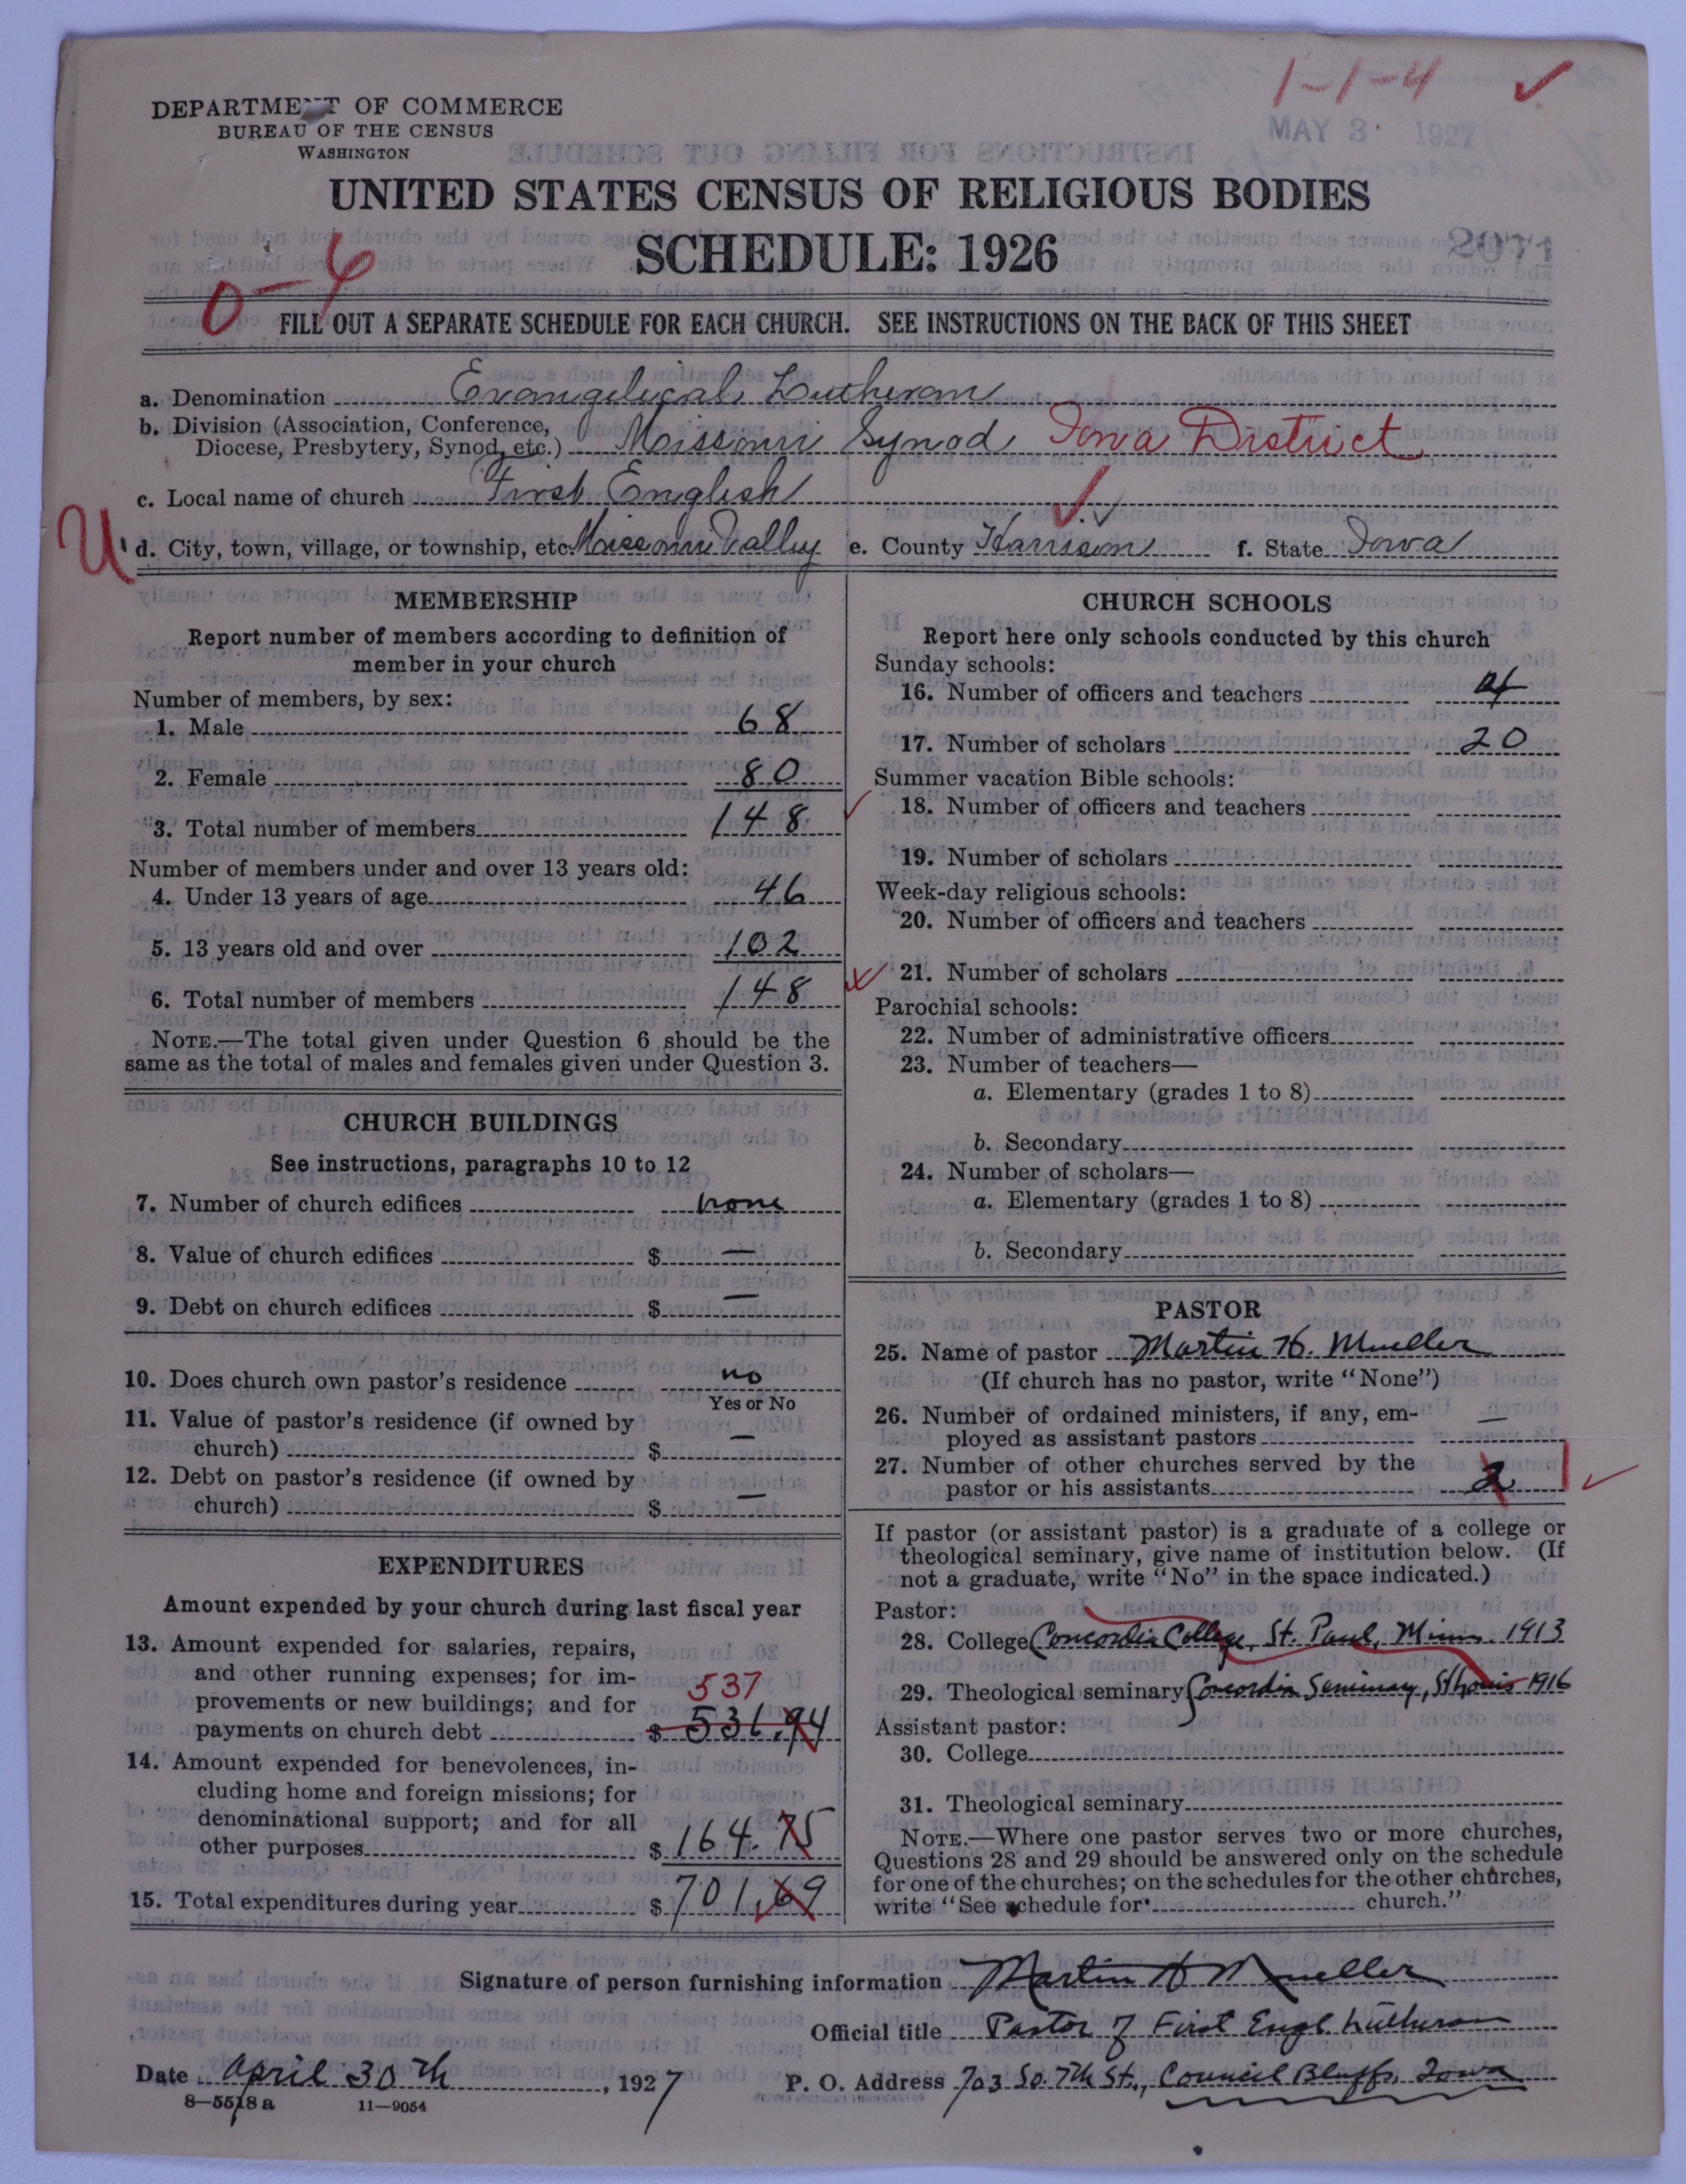 1-1-4 ✓
DEPARTMENT OF COMMERCE
BUREAU OF THE CENSUS
WASHINGTON
MAY 3 1927
UNITED STATES CENSUS OF RELIGIOUS BODIES
SCHEDULE: 1926
2071
FILL OUT A SEPARATE SCHEDULE FOR EACH CHURCH. SEE INSTRUCTIONS ON THE BACK OF THIS SHEET
a. Denomination Evangelical Lutheran
b. Division (Association, Conference,
Diocese, Presbytery, Synod, etc.) Missouri Synod Iowa District
c. Local name of church First English
U d. City, town, village, or township, etc. Missouri Valley e. County Harrison f. State Iowa
MEMBERSHIP
Report number of members according to definition of
member in your church
Number of members, by sex:
1. Male 68
2. Female 80
3. Total number of members 148
Number of members under and over 13 years old:
4. Under 13 years of age 46
5. 13 years old and over 102
6. Total number of members 148
NOTE.—The total given under Question 6 should be the
same as the total of males and females given under Question 3.
CHURCH BUILDINGS
See instructions, paragraphs 10 to 12
7. Number of church edifices none
8. Value of church edifices $ —
9. Debt on church edifices $ —
10. Does church own pastor's residence no
Yes or No
11. Value of pastor's residence (if owned by
church) $ —
12. Debt on pastor's residence (if owned by
church) $ —
EXPENDITURES
Amount expended by your church during last fiscal year
13. Amount expended for salaries, repairs,
and other running expenses; for im-
provements or new buildings; and for 537
payments on church debt $ 536.94
14. Amount expended for benevolences, in-
cluding home and foreign missions; for
denominational support; and for all
other purposes $ 164.75
15. Total expenditures during year $ 701.69
CHURCH SCHOOLS
Report here only schools conducted by this church
Sunday schools:
16. Number of officers and teachers
17. Number of scholars 20
Summer vacation Bible schools:
18. Number of officers and teachers
19. Number of scholars
Week-day religious schools:
20. Number of officers and teachers
21. Number of scholars
Parochial schools:
22. Number of administrative officers
23. Number of teachers—
a. Elementary (grades 1 to 8)
b. Secondary
24. Number of scholars—
a. Elementary (grades 1 to 8)
b. Secondary
PASTOR
25. Name of pastor Martin H. Mueller
(If church has no pastor, write "None")
26. Number of ordained ministers, if any, em-
ployed as assistant pastors —
27. Number of other churches served by the
pastor or his assistants 2 1
If pastor (or assistant pastor) is a graduate of a college or
theological seminary, give name of institution below. (If
not a graduate, write "No" in the space indicated.)
Pastor:
28. College Concordia College, St. Paul, Minn. 1913
29. Theological seminary Concordia Seminary, St Louis 1916
Assistant pastor:
30. College
31. Theological seminary
NOTE.—Where one pastor serves two or more churches,
Questions 28 and 29 should be answered only on the schedule
for one of the churches; on the schedules for the other churches,
write "See schedule for church."
Signature of person furnishing information Martin H Mueller
Official title Pastor of First Engl. Lutheran
Date April 30th, 1927 P. O. Address 703 So. 7th St., Council Bluffs, Iowa
8—5518 a 11—9054